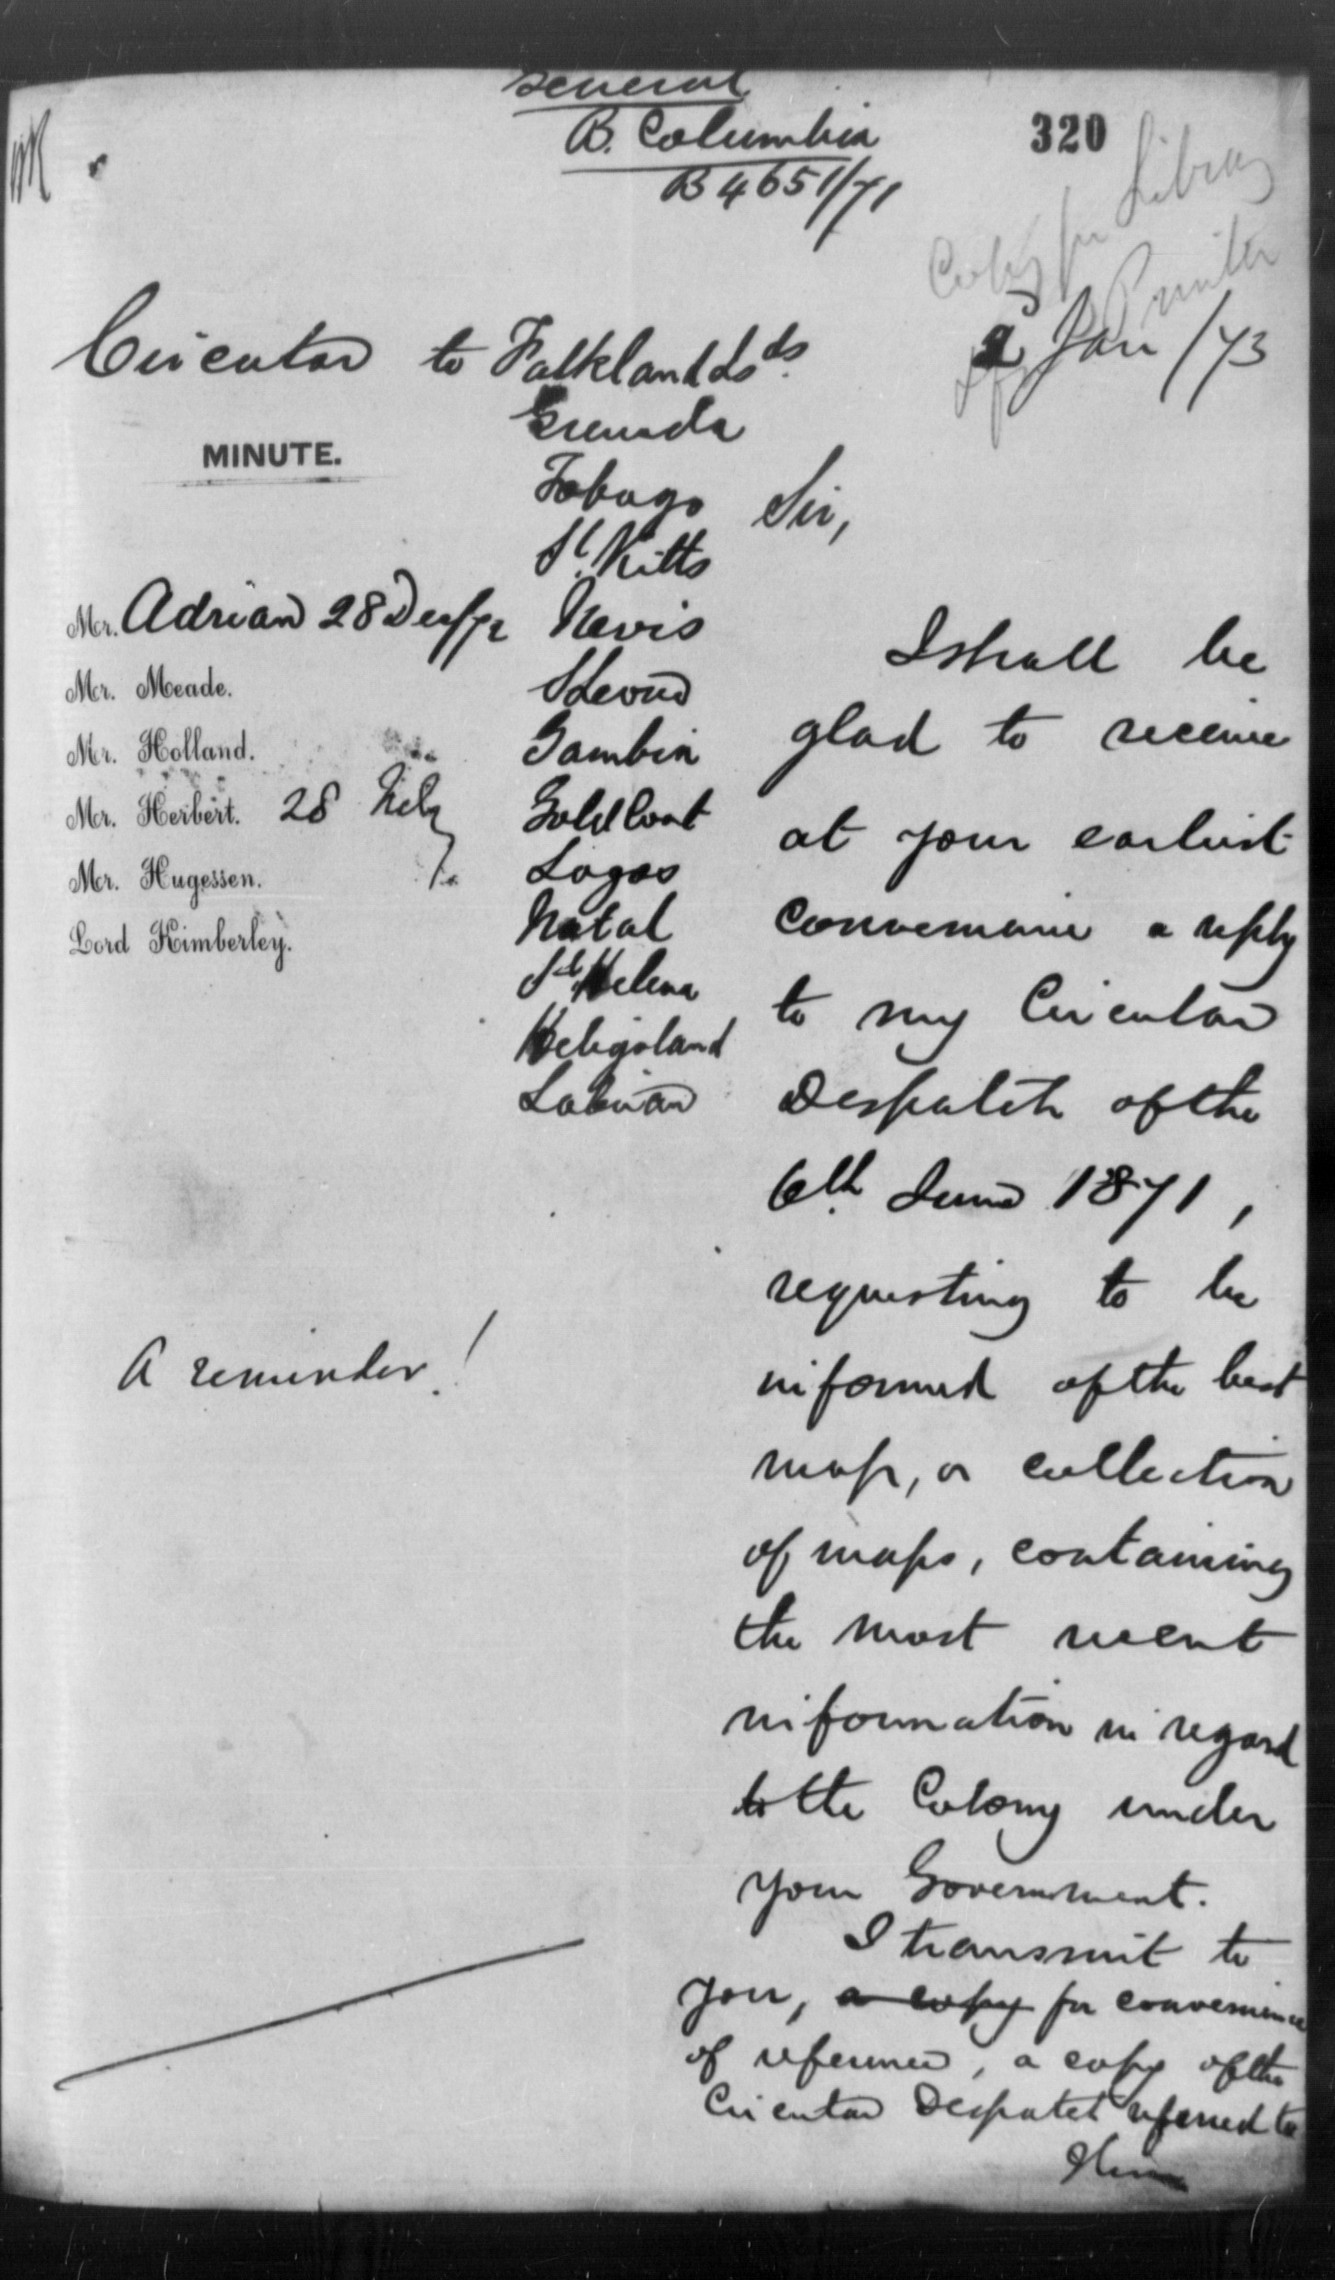 General
B. Columbia
B 4651/71
320
Copy for Library
Printer
2 Jan /73
Circular to Falkland Isds.
Grenada
Tobago
St. Kitts
Nevis
S Leone
Gambia
Gold Coast
Lagos
Natal
St. Helena
Heligoland
Labuan
MINUTE.
Mr. Adrian 28 Dec/72
Mr. Meade.
Mr. Holland.
Mr. Herbert. 28
Mr. Hugessen.
Lord Kimberley.
A reminder!
Sir,
I shall be
glad to receive
at your earliest
convenience a reply
to my Circular
Despatch of the
6th June 1871,
requesting to be
informed of the best
map, or collection
of maps, containing
the most recent
information in regard
to the Colony under
your Government.
I transmit to
you, a copy for convenience
of reference, a copy of the
Circular Despatch referred to